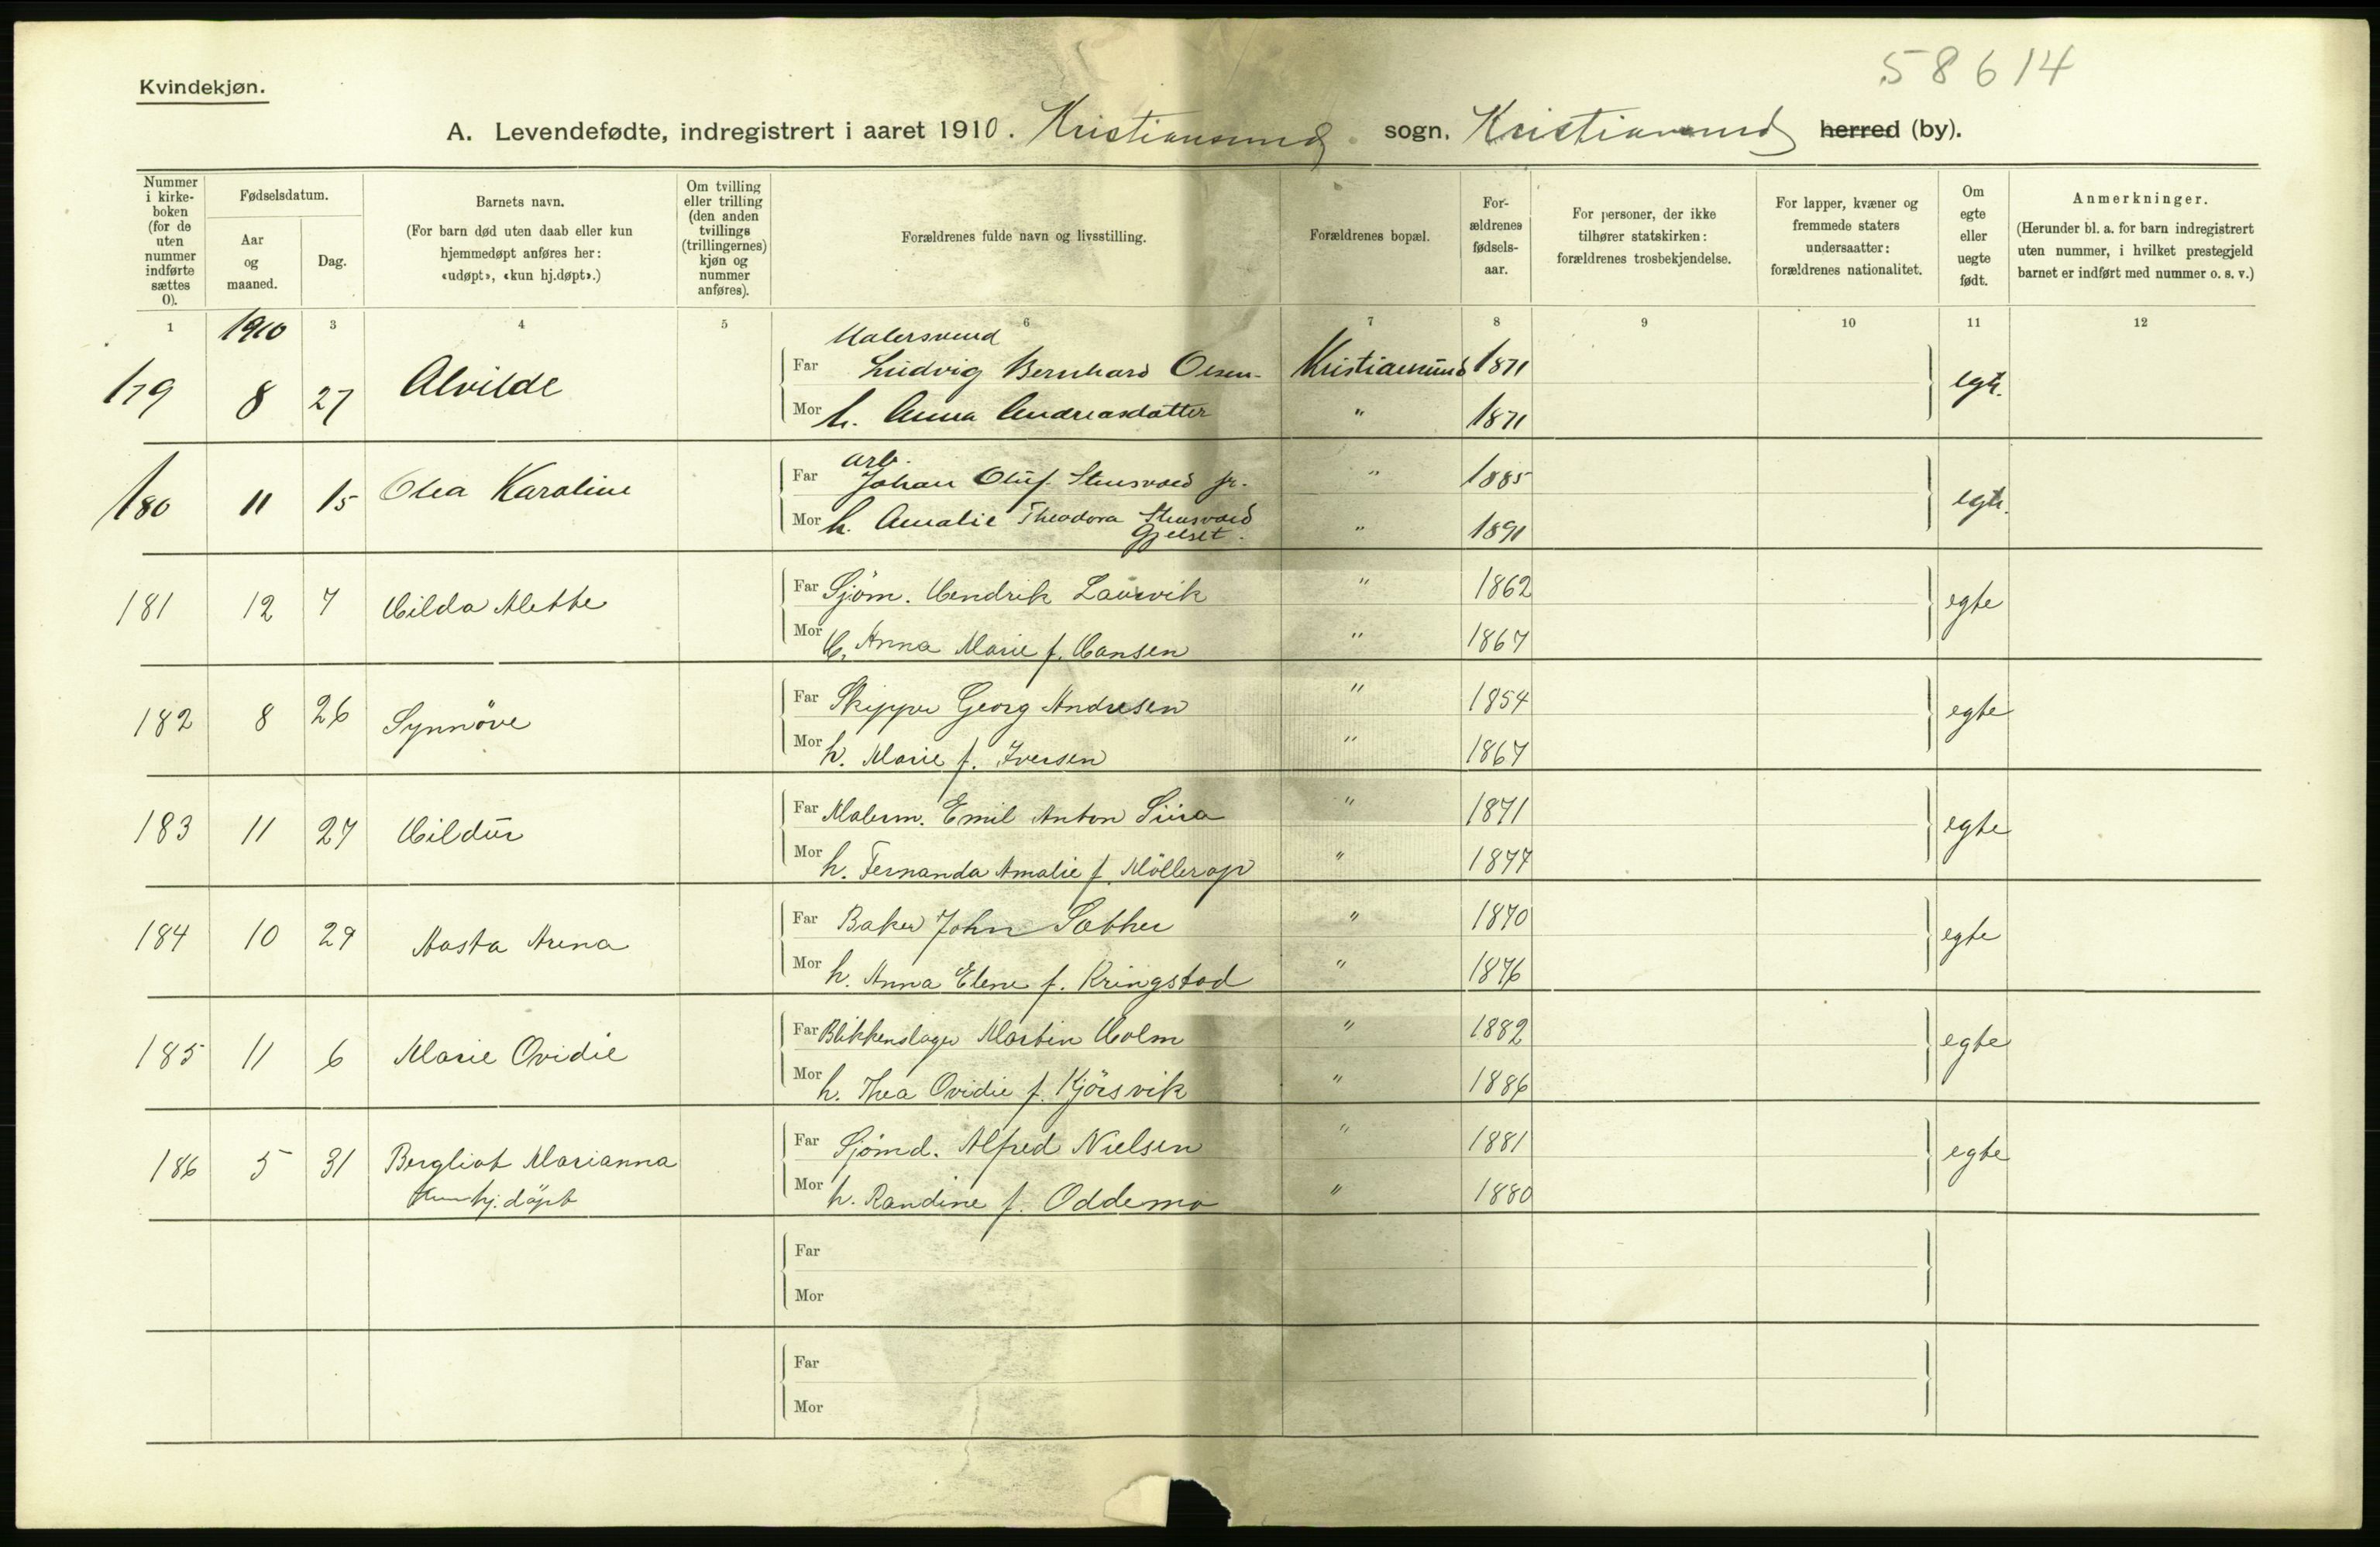 58614
Kvindekjøn.
A. Levendefødte, indregistrert i aaret 1910. Kristiansund sogn. Kristiansund herred (by).
Nummer i kirke-boken (for de uten nummer indførte sættes 0).
Fødselsdatum.
Aar og maaned.
Dag.
Barnets navn.
(For barn død uten daab eller kun hjemmedøpt anføres her: «udøpt», «kun hj.døpt».)
Om tvilling eller trilling (den anden tvillings (trillingernes) kjøn og nummer anføres).
Forældrenes fulde navn og livsstilling.
Forældrenes bopæl.
For-ældrenes fødsels-aar.
For personer, der ikke tilhører statskirken: forældrenes trosbekjendelse.
For lapper, kvæner og fremmede staters undersaatter: forældrenes nationalitet.
Om egte eller uegte født.
Anmerkninger.
(Herunder bl. a. for barn indregistrert uten nummer, i hvilket prestegjeld barnet er indført med nummer o. s. v.)
1 3 4 5 6 7 8 9 10 11 12
1910
Malersvend
179 8 27 Alvilde Far Ludvig Bernhard Olsen Kristiansund 1871 egte.
Mor h. Anna Andreasdatter " 1871
arb.
180 11 15 Olea Karoline Far Johan Oluf Stensvold jr. " 1885 egte.
Mor h. Amalie Theodora Stensvold " 1891
Gjelset.
181 12 7 Hilda Alette Far Sjöm. Hendrik Laurvik " 1862 egte
Mor H. Anna Marie f. Hansen " 1867
182 8 26 Synnöve Far Skipper Georg Andresen " 1854 egte
Mor h. Marie f. Iversen " 1867
183 11 27 Hildur Far Malerm. Emil Anton Siira " 1871 egte
Mor h. Fernanda Amalie f. Möllerop " 1877
184 10 29 Aasta Arena Far Baker John Sæther " 1870 egte
Mor h. Anna Elene f. Kringstad " 1876
185 11 6 Marie Ovidie Far Blikkenslager Martin Holm " 1882 egte
Mor h. Thea Ovidie f. Kjörsvik " 1886
186 5 31 Bergliot Marianna Far Sjömd. Alfred Nielsen " 1881 egte
Kun hj. döpt Mor h. Randine f. Oddemo " 1880
Far
Mor
Far
Mor